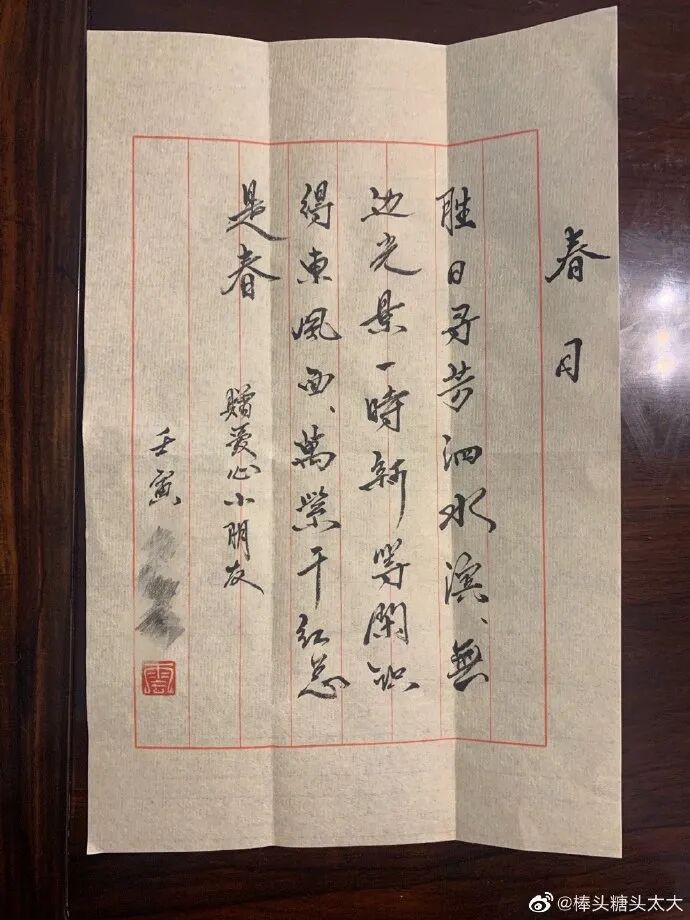 春日
胜日寻芳泗水滨、無
边光景一時新等闲识
得東風面、萬紫千红总
是春
赠爱心小朋友
壬寅
雲
@棒头糖头太太